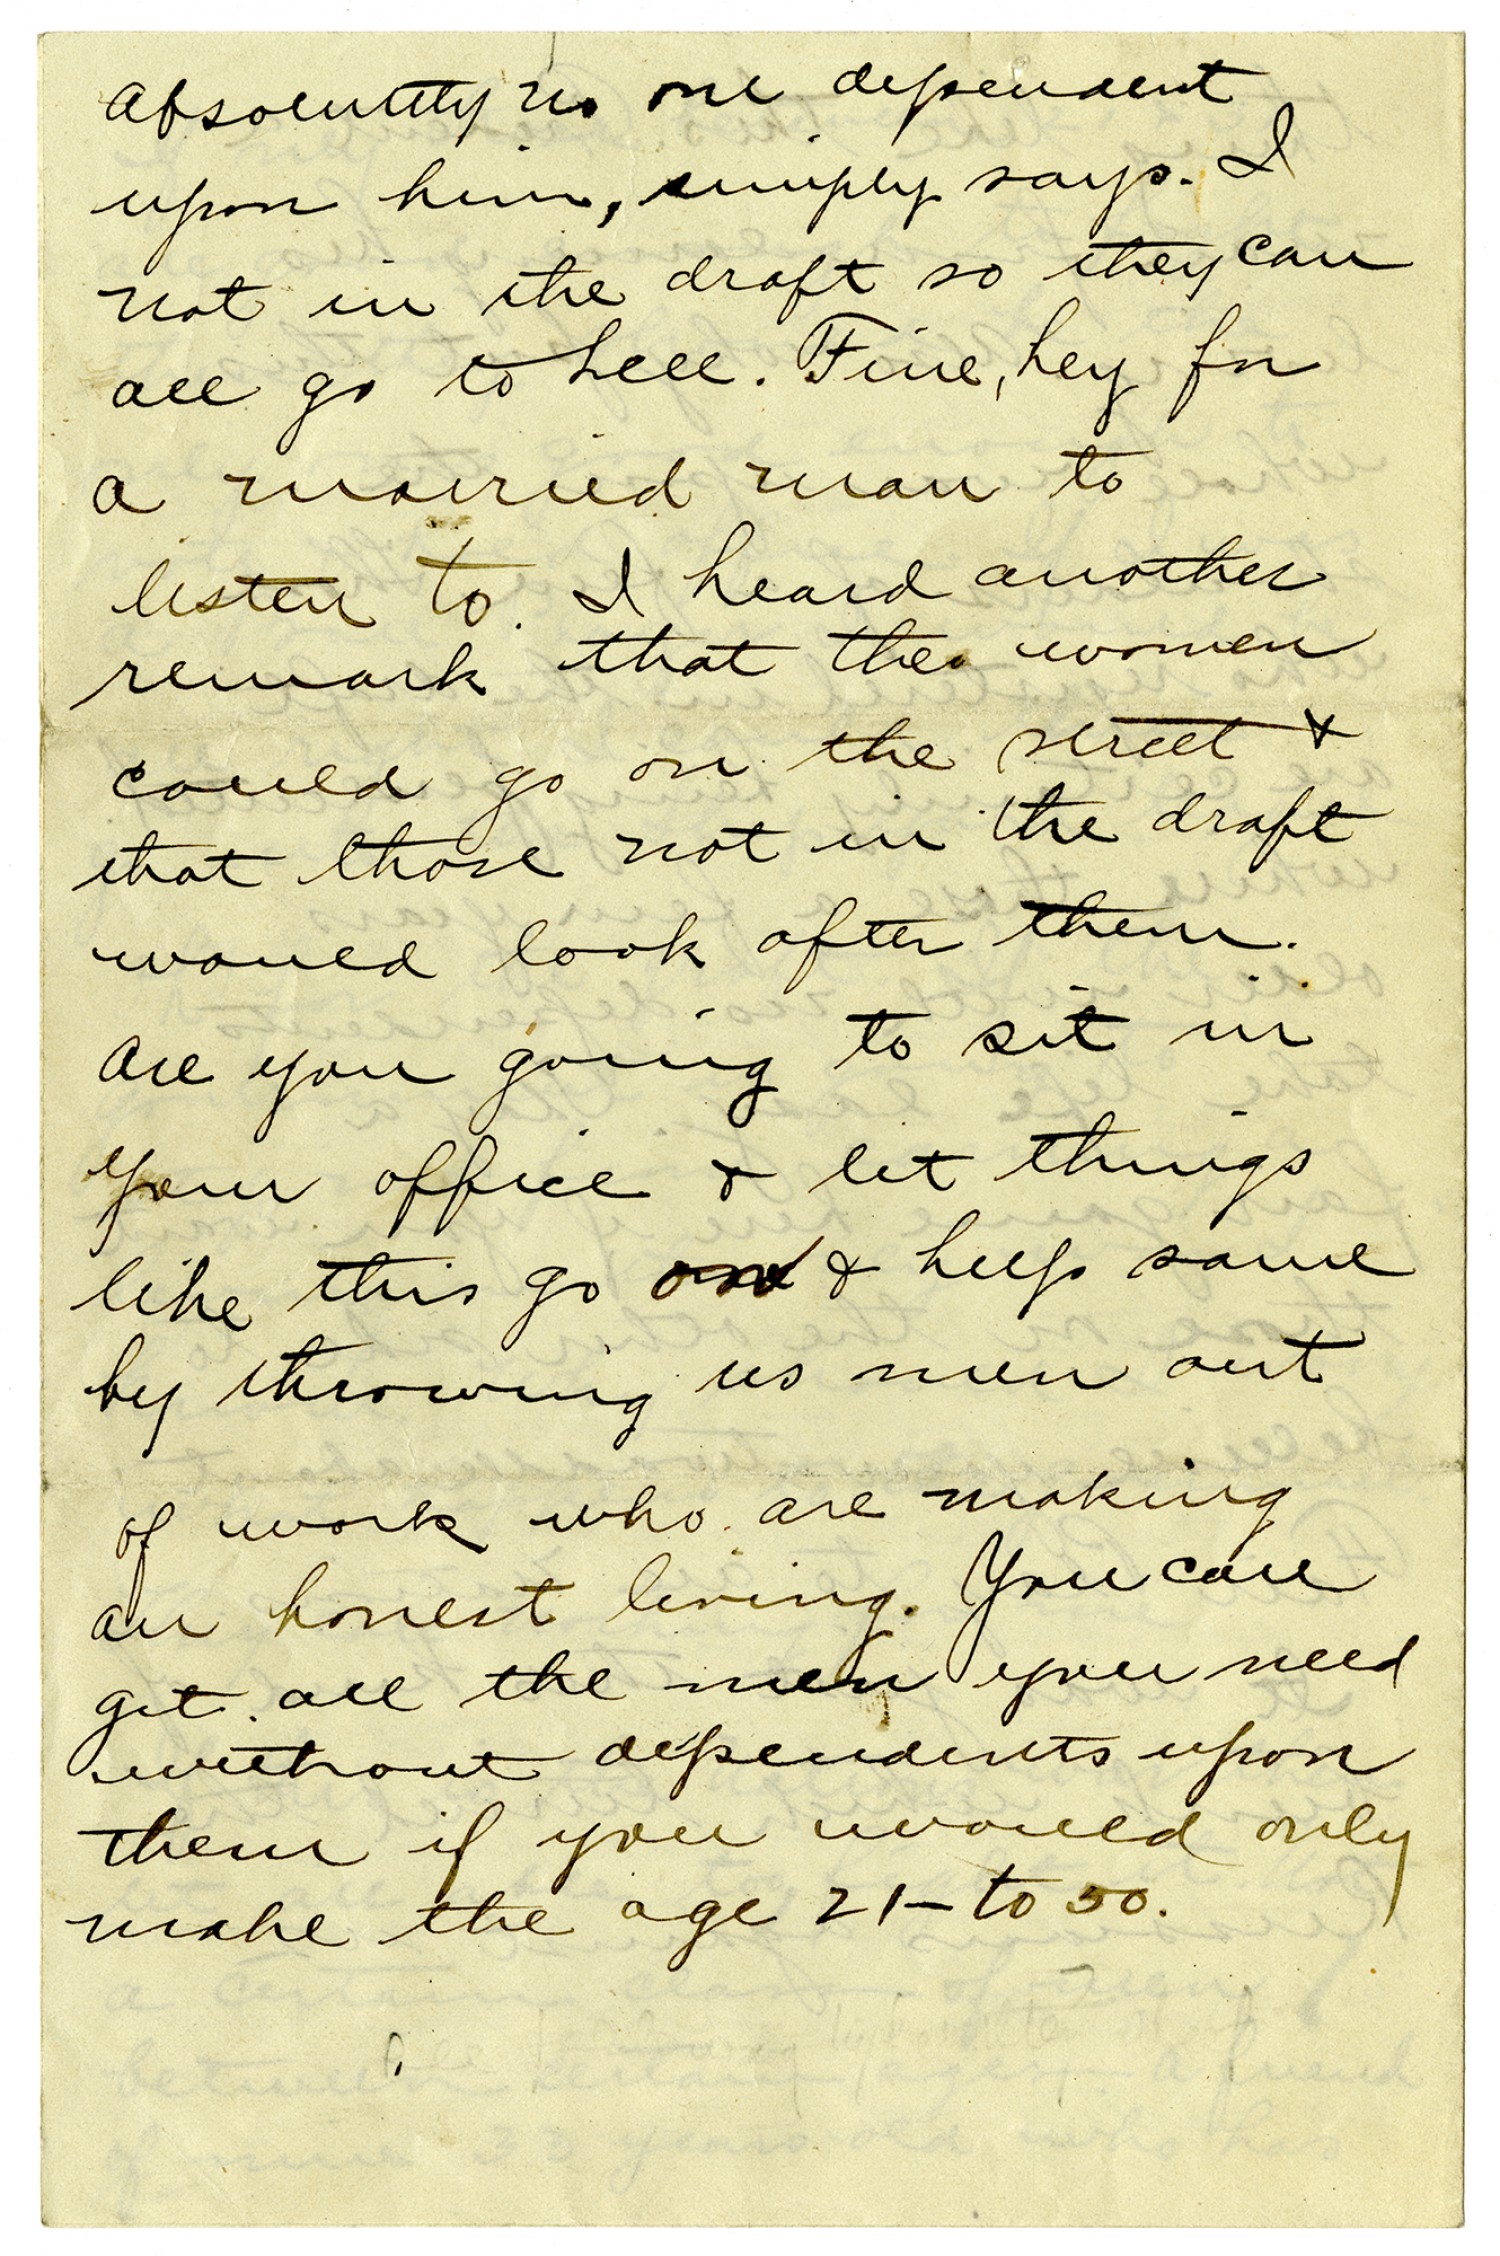 absolutely no one dependent
upon him, simply says. I
not in the draft so they can
all go to hell. Fine, hey for
a married man to
listen to. I heard another
remark that the women
could go on the street &
that those not in the draft
would look after them.
Are you going to sit in
your office & let things
like this go on & help same
by throwing us men out
of work who are making
an honest living. You can
get all the men you need
without dependents upon
them if you would only
make the age 21 - to 50.